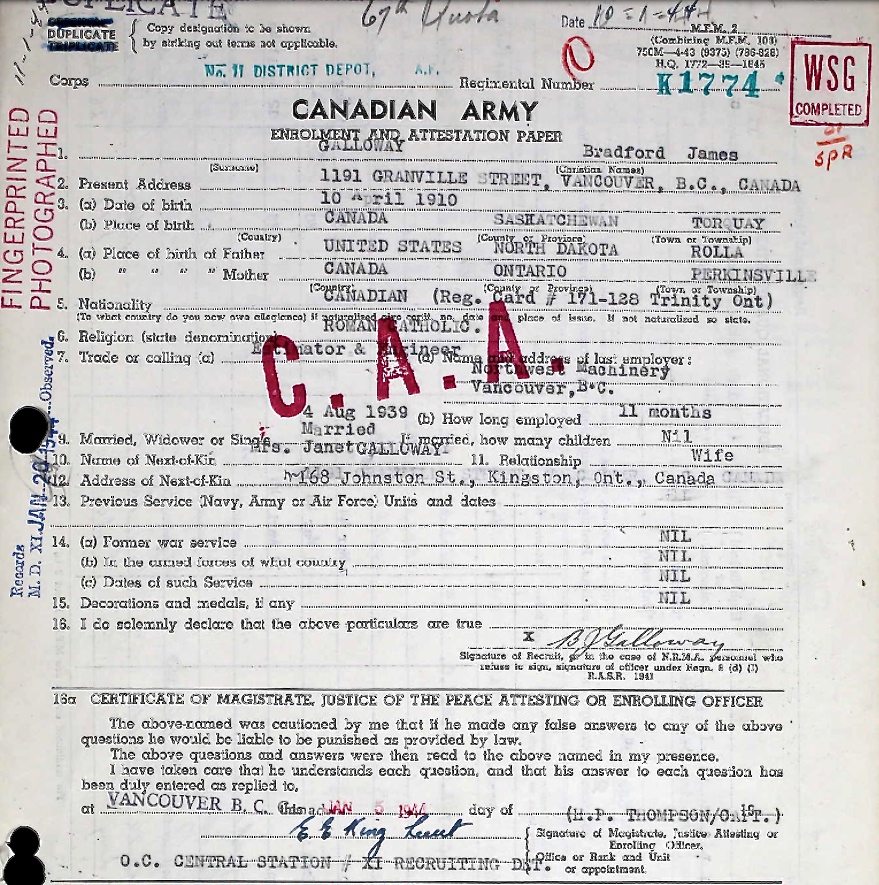 DUPLICATE
67th Quota
Date
DUPLICATE
Copy designation to be shown
by striking out terms not applicable.
M.F.M. 2
(Combining M.F.M. 103)
75CM—4-43 (9375) (786-828)
H.Q. 1772—39—1645
WSG
COMPLETED
Corps No. 11 DISTRICT DEPOT, A.F. Regimental Number K1774
SPR
FINGERPRINTED
PHOTOGRAPHED
CANADIAN ARMY
ENROLMENT AND ATTESTATION PAPER
1. GALLOWAY Bradford James
(Surname) (Christian Names)
2. Present Address 1191 GRANVILLE STREET, VANCOUVER, B.C., CANADA
3. (a) Date of birth 10 April 1910
(b) Place of birth CANADA SASKATCHEWAN TORQUAY
(Country) (County or Province) (Town or Township)
4. (a) Place of birth of Father UNITED STATES NORTH DAKOTA ROLLA
(b) " " " " Mother CANADA ONTARIO PERKINSVILLE
(Country) (County or Province) (Town or Township)
5. Nationality CANADIAN (Reg. Card # 171-128 Trinity Ont)
(To what country do you now owe allegiance) if naturalized give certf. no. date and place of issue. If not naturalized so state.
6. Religion (state denomination) ROMAN CATHOLIC.
7. Trade or calling (a) Estimator & Engineer (a) Name and address of last employer:
Northwest Machinery
Vancouver, B.C.
C.A.A.
4 Aug 1939 (b) How long employed 11 months
9. Married, Widower or Single Married If married, how many children Nil
10. Name of Next-of-Kin Mrs. Janet GALLOWAY 11. Relationship Wife
12. Address of Next-of-Kin 168 Johnston St., Kingston, Ont., Canada
13. Previous Service (Navy, Army or Air Force) Units and dates
14. (a) Former war service NIL
(b) In the armed forces of what country NIL
(c) Dates of such Service NIL
15. Decorations and medals, if any NIL
16. I do solemnly declare that the above particulars are true
X BJGalloway
Signature of Recruit, or in the case of N.R.M.A. personnel who
refuse to sign, signature of officer under Regn. 8 (d) (1)
R.A.S.R. 1941
Records
M. D. XI. JAN 20 Observed.
16a CERTIFICATE OF MAGISTRATE, JUSTICE OF THE PEACE ATTESTING OR ENROLLING OFFICER
The above-named was cautioned by me that if he made any false answers to any of the above
questions he would be liable to be punished as provided by law.
The above questions and answers were then read to the above named in my presence.
I have taken care that he understands each question, and that his answer to each question has
been duly entered as replied to,
at VANCOUVER B. C. this JAN 5 1944 day of 19
(H.P. THOMPSON/CAPT.)
E E King Lieut
Signature of Magistrate, Justice Attesting or
Enrolling Officer,
Office or Rank and Unit
or appointment.
O.C. CENTRAL STATION # XI RECRUITING DET.